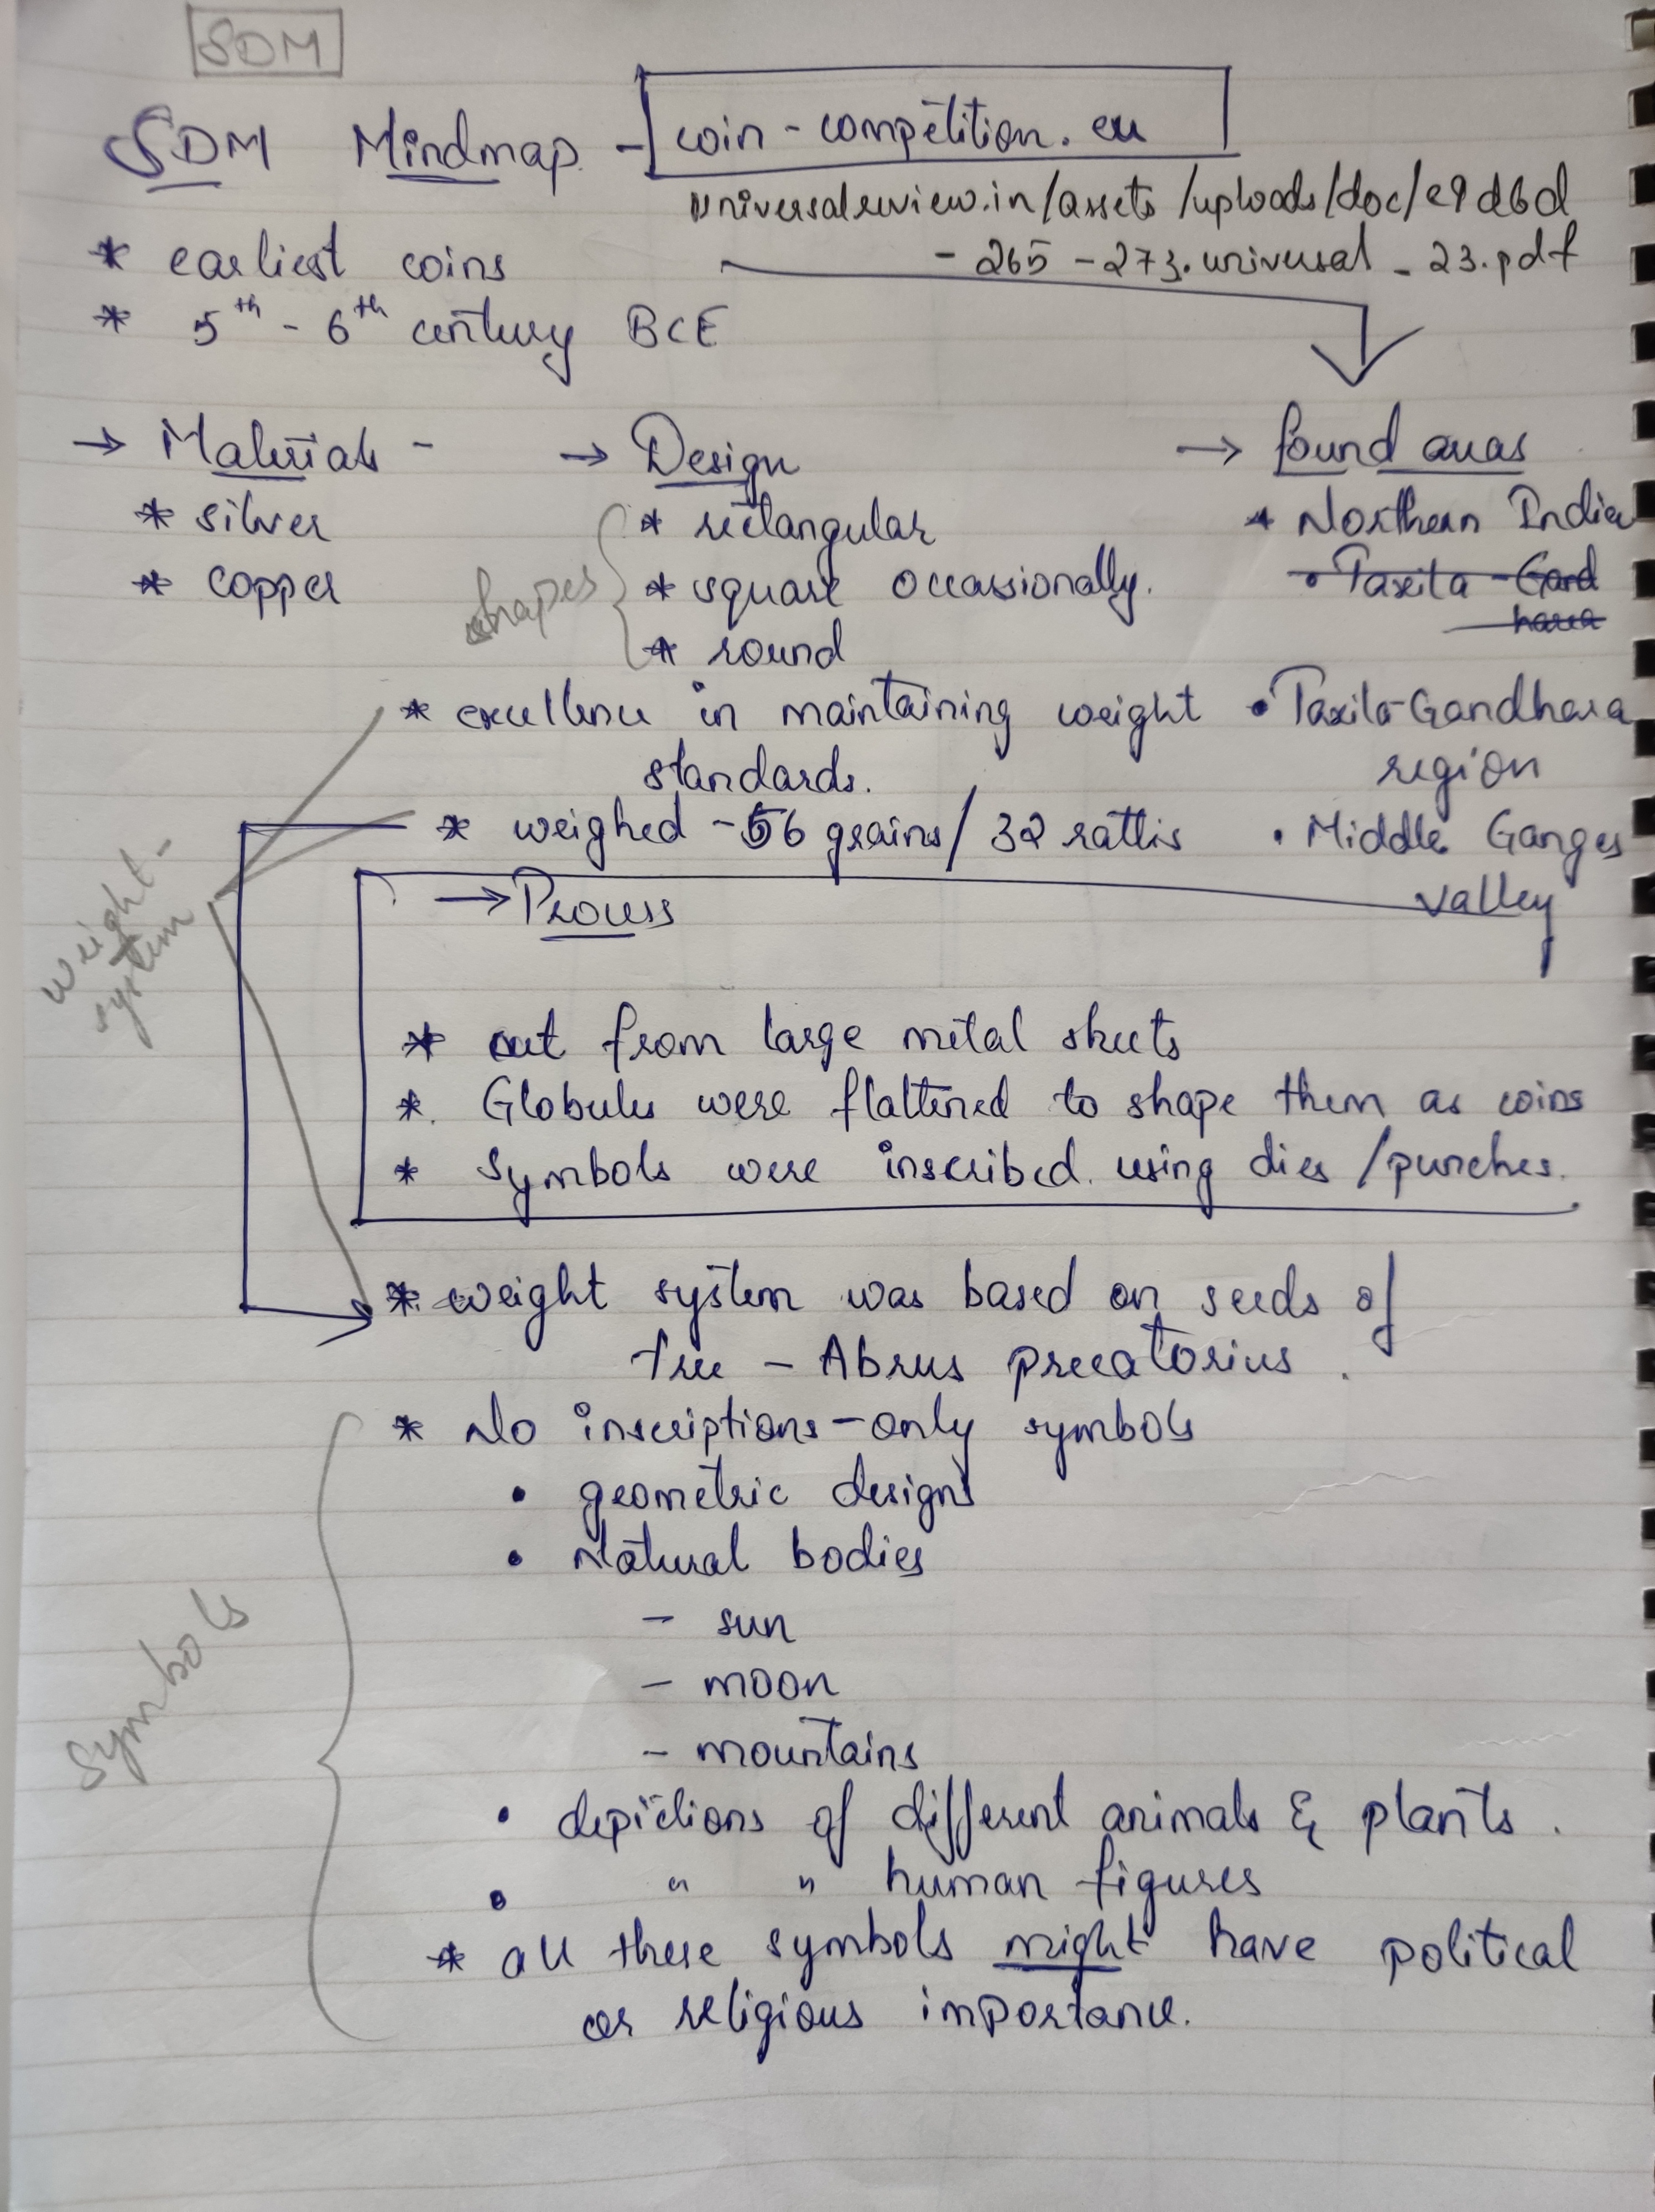 SDM
SDM Mindmap - coin-competition.eu
universalreview.in/assets/uploads/doc/e9d6d
- 265 - 273.universal - 23.pdf
* earliest coins
* 5th - 6th century BCE
→ Materials -
* silver
* copper
→ Design
shapes
* rectangular
* square occassionally.
* round
→ found areas
* Northern India
• Taxila - Gand
hara
• Taxila-Gandhara
region
• Middle Ganges
valley
weight-
system
* excellence in maintaining weight
standards.
* weighed - 56 grains / 32 rattis
→ Process
* cut from large metal sheets
*. Globules were flattened to shape them as coins
* symbols were inscribed using dies / punches.
* weight system was based on seeds of
tree - Abrus precatorius.
Symbols
* No inscriptions - only symbols
• geometric designs
• Natural bodies
- sun
- moon
- mountains
• depictions of different animals & plants.
• " " human figures
* all these symbols might have political
or religious importance.